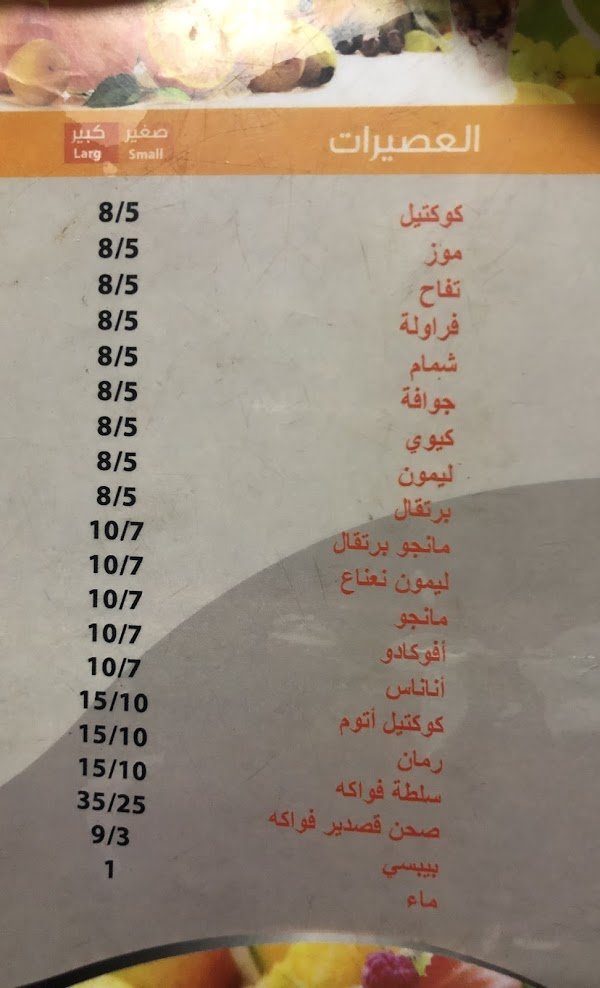 العصيرات صغير كبير
Larg Small
كوكتيل 8/5
موز 8/5
تفاح 8/5
فراولة 8/5
شمام 8/5
جوافة 8/5
كيوي 8/5
ليمون 8/5
برتقال 8/5
مانجو برتقال 10/7
ليمون نعناع 10/7
مانجو 10/7
أفوكادو 10/7
أناناس 10/7
كوكتيل أتوم 15/10
رمان 15/10
سلطة فواكه 15/10
صحن قصدير فواكه 35/25
بيبسي 9/3
ماء 1